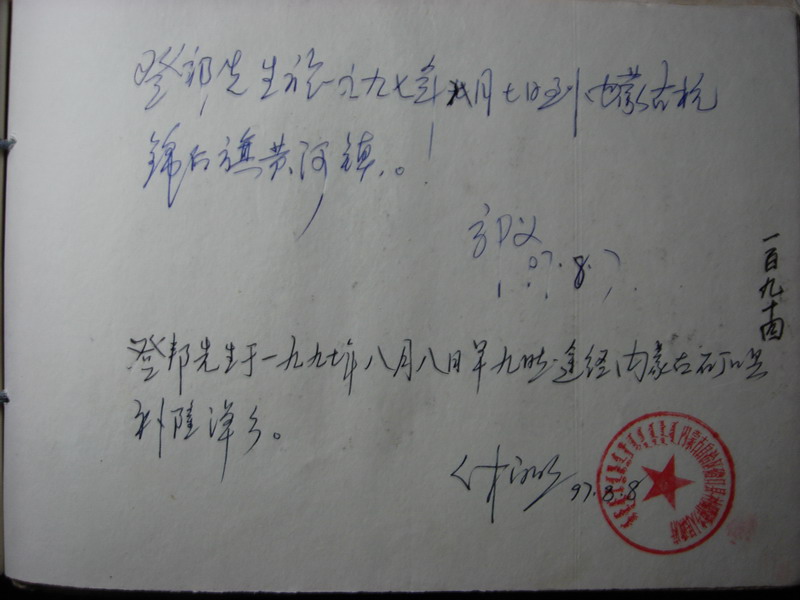 登邦先生于一九九七年八月七日到内蒙古杭
锦后旗黄河镇。
97.8.7
登邦先生于一九九七年八月八日早九时途经内蒙古磴口县
补隆淖乡。
97.8.8
一百九十四